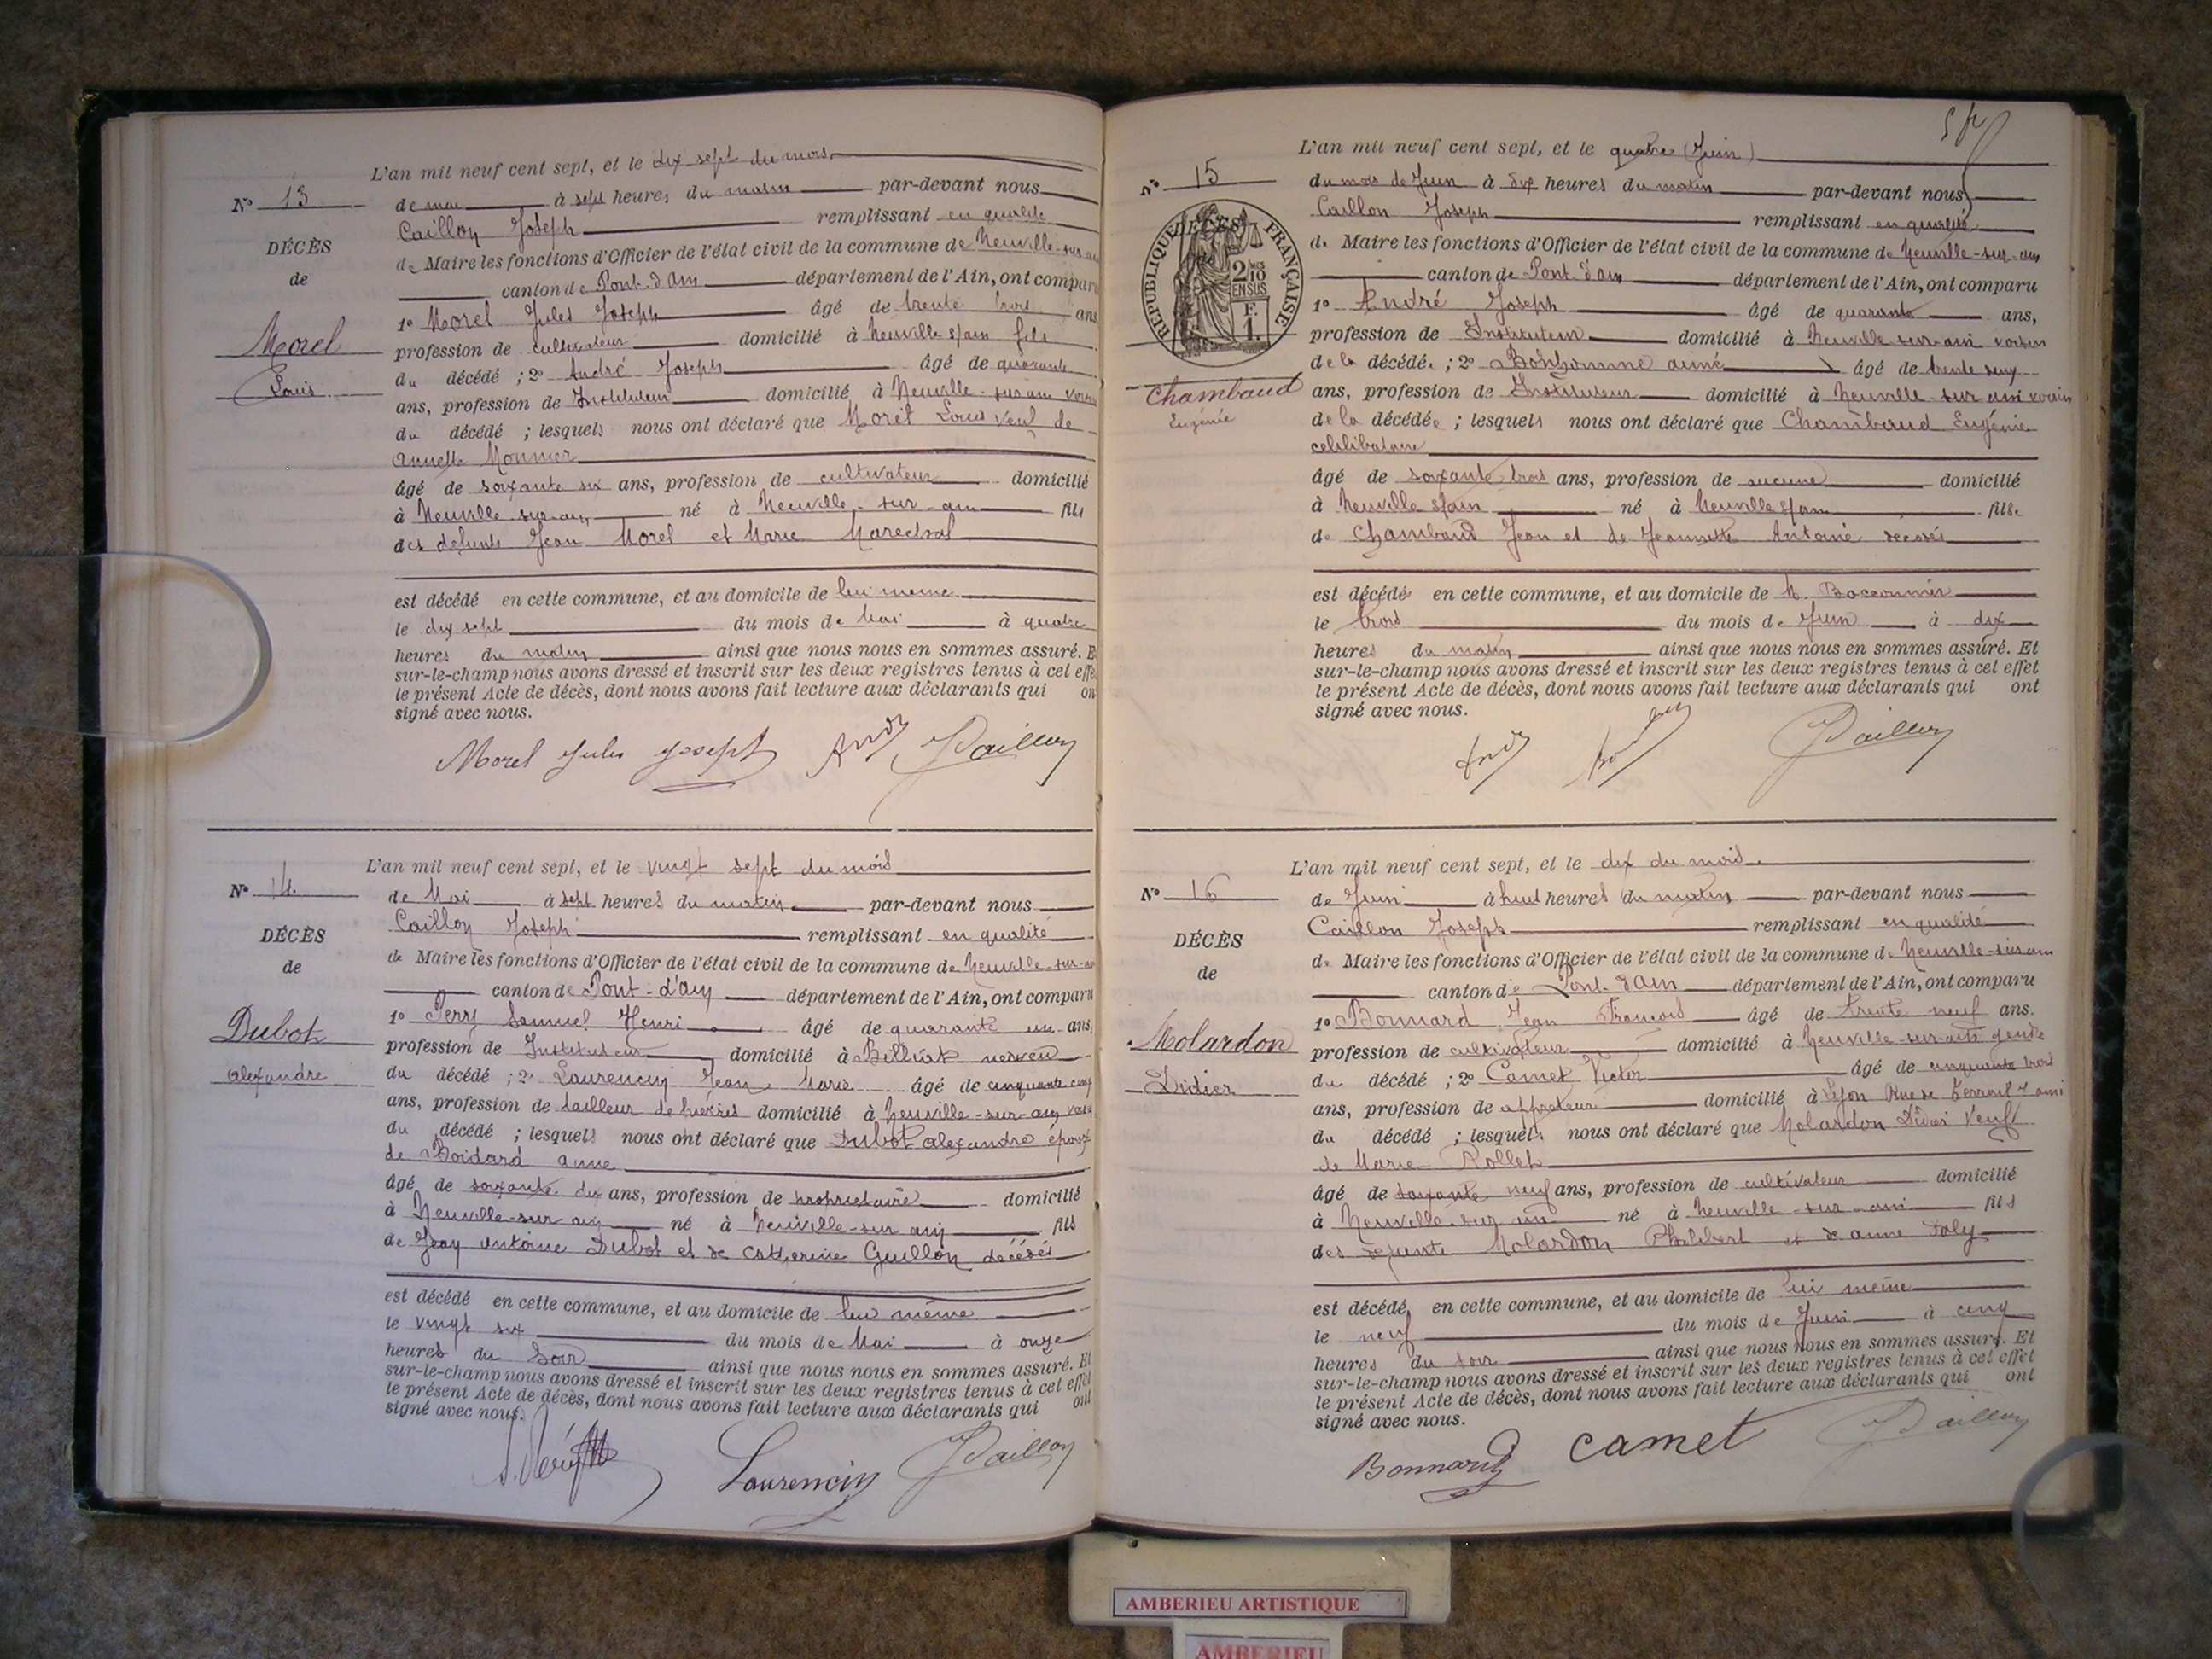 L'an mil neuf cent sept, et le dix sept du mois
N° 13
de mai à sept heures du matin par-devant nous
Caillon Joseph remplissant en qualité
de Maire les fonctions d'Officier de l'état civil de la commune de Neuville-sur-
canton de Pont-d'ain département de l'Ain, ont compar
DÉCÈS
de
Morel
Louis
1° Morel Jules Joseph âgé de trente trois ans
profession de cultivateur domicilié à Neuville s/ain fils
du décédé ; 2° André Joseph âgé de quarante
ans, profession de Instituteur domicilié à Neuville-sur ain voisin
du décédé ; lesquels nous ont déclaré que Morel Louis veuf de
Monnier
âgé de soixante six ans, profession de cultivateur domicilié
à Neuville-sur-ain né à Neuville-sur-ain fils
des defunts Jean Morel et Marie Marechal
est décédé en cette commune, et au domicile de lui meme
le dix sept du mois de Mai à quatre
heures du matin ainsi que nous nous en sommes assuré. E
sur-le-champ nous avons dressé et inscrit sur les deux registres tenus à cel effe
le présent Acte de décès, dont nous avons fait lecture aux déclarants qui on
signé avec nous.
Morel Jules Joseph André JCaillon
L'an mil neuf cent sept, et le vingt sept du mois
N° 14
de Mai à sept heures du matin par-devant nous
Caillon Joseph remplissant en qualité
de Maire les fonctions d'Officier de l'état civil de la commune de Neuville-sur-
canton de Pont-d'ain département de l'Ain, ont comparu
DÉCÈS
de
Dubot
alexandre
1° Samuel Henri âgé de quarante un ans,
profession de Instituteur domicilié à neveu
du décédé ; 2° Laurencin Jean Marie âgé de cinquante cinq
ans, profession de tailleur de domicilié à Neuville-sur-ain
du décédé ; lesquels nous ont déclaré que Dubot alexandre époux
de Boidard anne
âgé de soixante dix ans, profession de proprietaire domicilié
à Neuville-sur ain né à Neuville-sur ain fils
de Jean antoine Dubot et de catherine Guillon décédés
est décédé en cette commune, et au domicile de lui même
le vingt six du mois de Mai à onze
heures du Soir ainsi que nous nous en sommes assuré. Et
sur-le-champ nous avons dressé et inscrit sur les deux registres tenus à cel effet
le présent Acte de décès, dont nous avons fait lecture aux déclarants qui ont
signé avec nous.
Laurencin JCaillon
L'an mil neuf cent sept, et le quatre (Juin)
N° 15
du mois de Juin à dix heures du matin par-devant nous
Caillon Joseph remplissant en qualité
de Maire les fonctions d'Officier de l'état civil de la commune de Neuville-sur-ain
canton de Pont-d'ain département de l'Ain, ont comparu
RÉPUBLIQUE FRANÇAISE
DÉCÈS
2/10 EN SUS
F. 1.
Chambaud
Eugénie
1° André Joseph âgé de quarante ans,
profession de Instituteur domicilié à Neuville-sur-ain voisin
de la décédée ; 2° Bonhomme aimé âgé de trente
ans, profession de Instituteur domicilié à Neuville-sur ain voisin
de la décédée ; lesquels nous ont déclaré que Chambaud Eugénie
celibataire
âgé de soixante trois ans, profession de aucune domicilié
à Neuville s/ain né à Neuville s/ain fille
de Chambaud Jean et de Jeannette Antoine
est décédée en cette commune, et au domicile de
le trois du mois de Juin à dix
heures du matin ainsi que nous nous en sommes assuré. Et
sur-le-champ nous avons dressé et inscrit sur les deux registres tenus à cel effet
le présent Acte de décès, dont nous avons fait lecture aux déclarants qui ont
signé avec nous.
André JCaillon
L'an mil neuf cent sept, et le dix du mois
N° 16
de Juin à huit heures du matin par-devant nous
Caillon Joseph remplissant en qualité
de Maire les fonctions d'Officier de l'état civil de la commune de Neuville-sur ain
canton de Pont-d'ain département de l'Ain, ont comparu
DÉCÈS
de
Molardon
Didier
1° Bonnard Jean François âgé de trente neuf ans.
profession de cultivateur domicilié à Neuville-sur-ain gendre
du décédé ; 2° Camet Victor âgé de cinquante trois
ans, profession de appreteur domicilié à Lyon Rue ami
du décédé ; lesquels nous ont déclaré que Molardon Didier Veuf
de Marie Rollet
âgé de soixante neuf ans, profession de cultivateur domicilié
à Neuville-sur ain né à Neuville-sur-ain fils
des defunts Molardon Philibert et de anne Joly
est décédé, en cette commune, et au domicile de lui même
le neuf du mois de Juin à cinq
heures du soir ainsi que nous nous en sommes assuré. Et
sur-le-champ nous avons dressé et inscrit sur les deux registres tenus à cel effet
le présent Acte de décès, dont nous avons fait lecture aux déclarants qui ont
signé avec nous.
Bonnard Camet JCaillon
AMBERIEU ARTISTIQUE
AMBERIEU